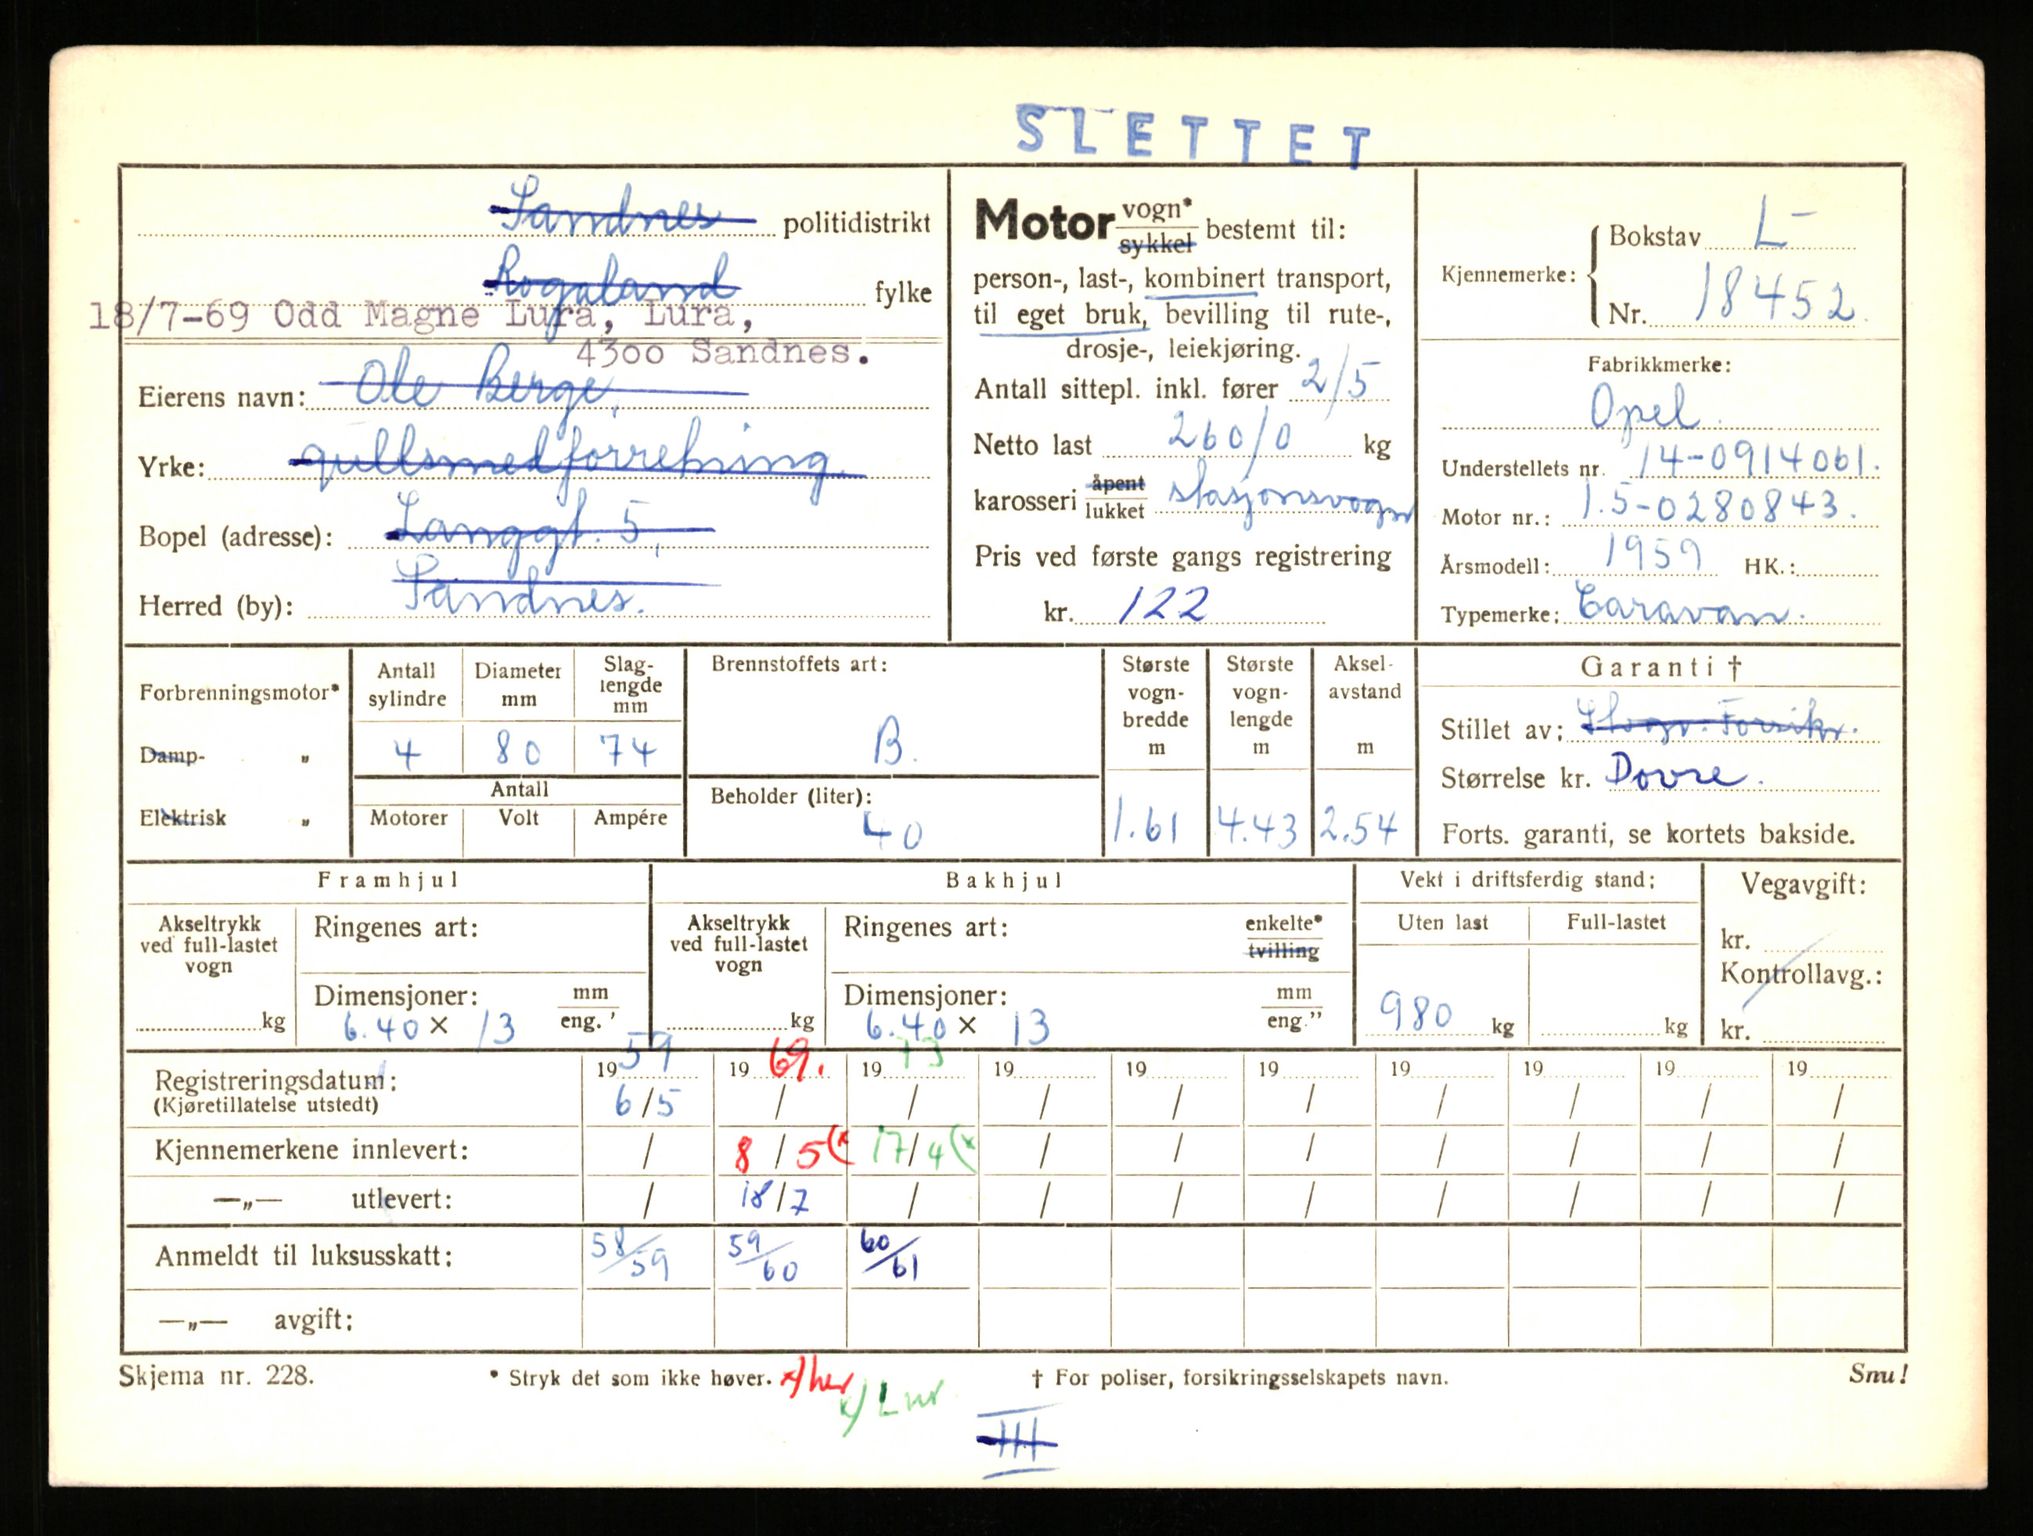 SLETTET
Sandnes politidistrikt
Rogaland fylke
18/7-69 Odd Magne Lura, Lura,
4300 Sandnes.
Eierens navn: Ole Berge,
Yrke: gullsmedforretning
Bopel (adresse): Langgt. 5,
Herred (by): Sandnes.
Motor vogn* sykkel bestemt til:
person-, last-, kombinert transport,
til eget bruk, bevilling til rute-,
drosje-, leiekjøring.
Antall sittepl. inkl. fører 2/5
Netto last 260/0 kg
karosseri åpent lukket stasjonsvogn
Pris ved første gangs registrering
kr. 122
Kjennemerke: Bokstav L-
Nr. 18452
Fabrikkmerke:
Opel.
Understellets nr. 14-0914061.
Motor nr.: 1.5-0280843.
Årsmodell: 1959 HK.:
Typemerke: Caravan.
Forbrenningsmotor*
Damp- "
Elektrisk "
Antall sylindre 4
Diameter mm 80
Slag-lengde mm 74
Antall
Motorer Volt Ampére
Brennstoffets art:
B.
Beholder (liter):
40
Største vogn-bredde m 1.61
Største vogn-lengde m 4.43
Aksel-avstand m 2.54
Garanti †
Stillet av: Forsikr.
Størrelse kr. Dovre.
Forts. garanti, se kortets bakside.
Framhjul
Akseltrykk ved full-lastet vogn
kg
Ringenes art:
Dimensjoner: mm eng. '
6.40 × 13
Bakhjul
Akseltrykk ved full-lastet vogn
kg
Ringenes art: enkelte* tvilling
Dimensjoner: mm eng."
6.40 × 13
Vekt i driftsferdig stand:
Uten last Full-lastet
980 kg kg
Vegavgift:
kr.
Kontrollavg.:
kr.
Registreringsdatum: 1959 1969. 1973 19 19 19 19 19 19 19
(Kjøretillatelse utstedt) 6/5 / / / / / / / / /
Kjennemerkene innlevert: / 8/5(x 17/4(x / / / / / / /
—"— utlevert: / 18/7 / / / / / / / /
Anmeldt til luksusskatt: 58/59 59/60 60/61
—"— avgift:
Skjema nr. 228. * Stryk det som ikke høver. x/her † For poliser, forsikringsselskapets navn. Snu!
x/ L nr
III